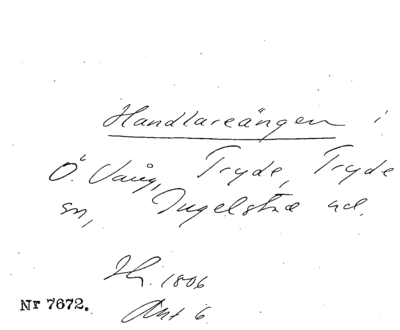 Handlareängen i
Ö. Vång, Tryde, Tryde
sn, Ingelstad hd.
Hr. 1806
Akt 6
Nr 7672.